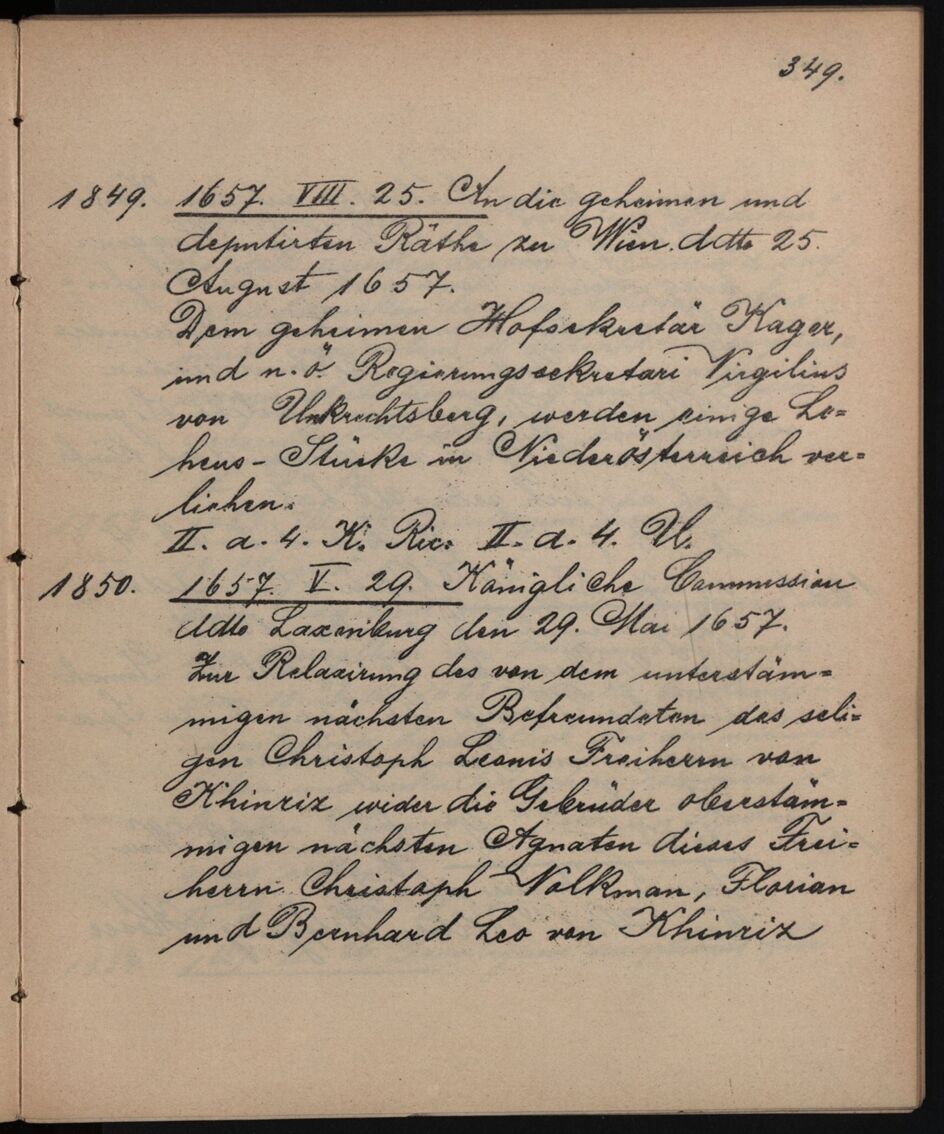 349.
1849. 1657. VIII. 25. An die geheimen und
deputirten Räthe zu Wien ddto 25.
August 1657.
Dem geheimen Hofsekretär Kager,
und n. ö. Regierungssekretari Virgilius
von Unkrechtsberg, werden einige Le=
hens-Stücke in Niederösterreich ver=
liehen.
II. a. 4. K. Rec. II. d. 4. U.
1850. 1657. V. 29. Königliche Commission
ddto Laxenburg den 29. Mai 1657.
Zur Relaxirung des von dem unterstäm=
migen nächsten Befreundeten des seli=
gen Christoph Leonis Freiherrn von
Khinriz wider die Gebrüder oberstäm=
migen nächsten Agnaten dieses Frei=
herrn Christoph Volkman, Florian
und Bernhard Leo von Khinriz